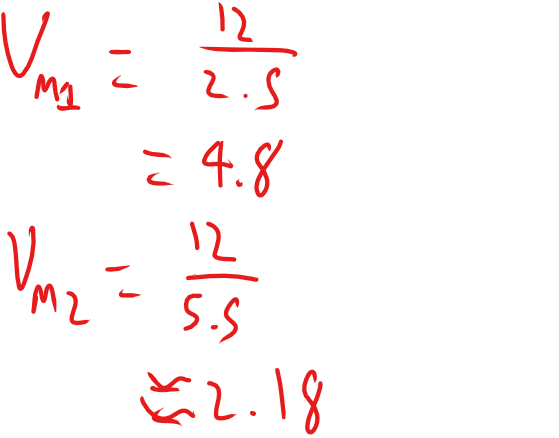 V_{m_1} = \frac{12}{2.5}
= 4.8
V_{m_2} = \frac{12}{5.5}
≈ 2.18